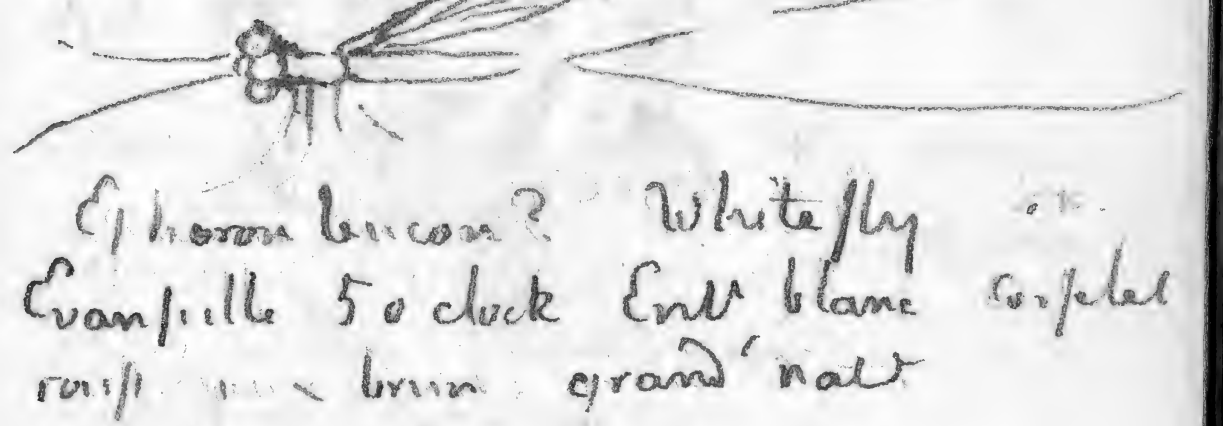 Ephoron leucon? White fly
Evansville 5 o clock Entt blanc corselet
brun grand' natt